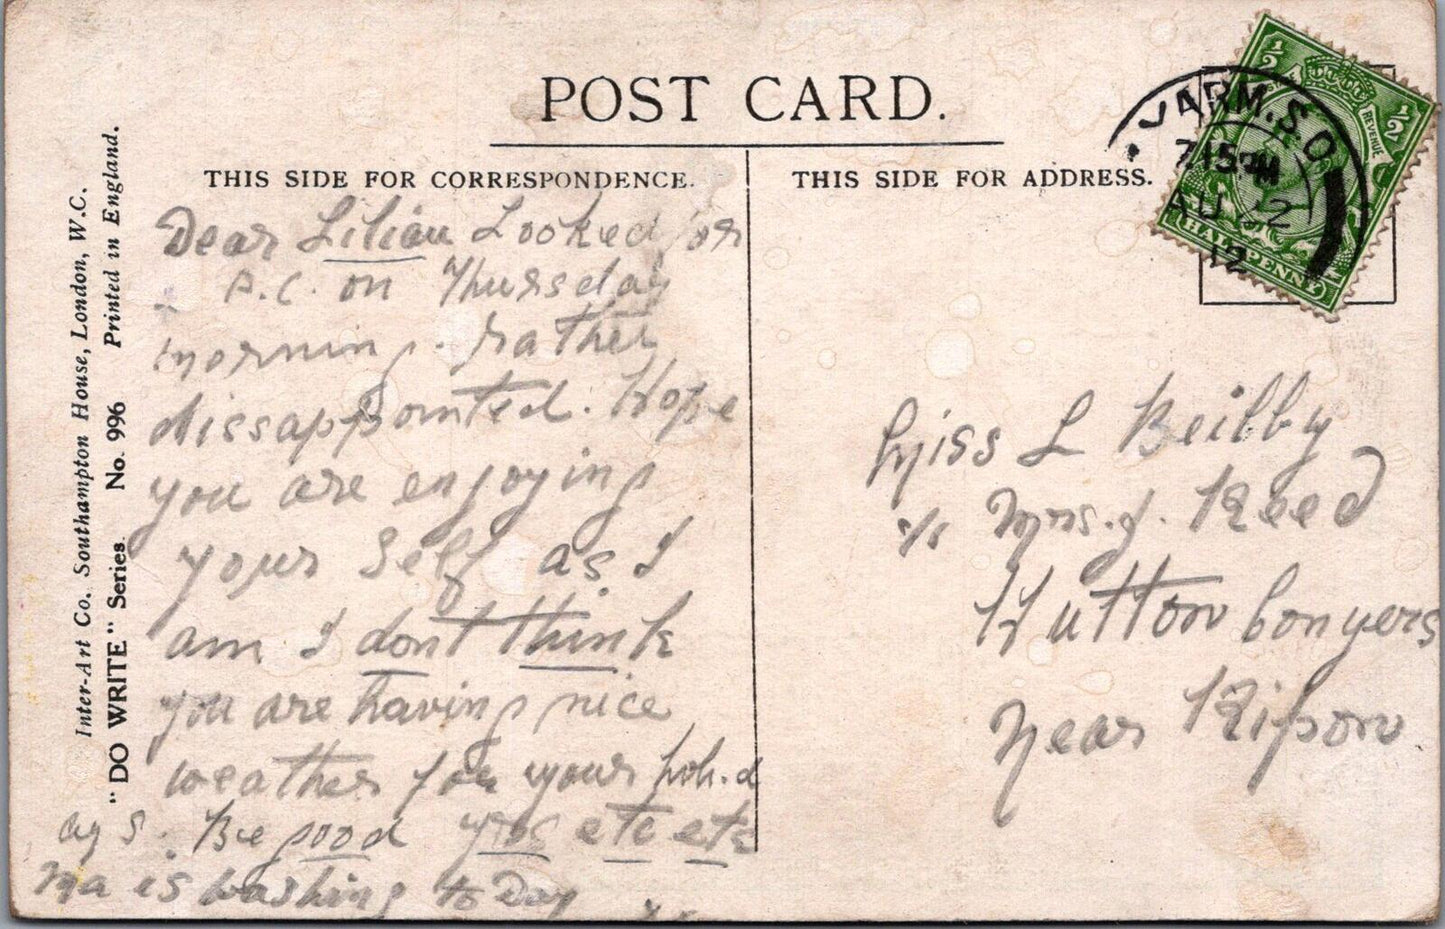 POST CARD.
THIS SIDE FOR CORRESPONDENCE.
THIS SIDE FOR ADDRESS.
Inter-Art Co., Southampton House, London, W.C.
"DO WRITE" Series No. 996 Printed in England.
YARM.S.O
7.15 PM
AU 2
12
½ ½
REVENUE
HALFPENNY
Dear Lilian Looked for
P.C. on Thursday
morning. rather
dissappointed. Hope
you are enjoying
your Self as I
am I dont think
you are having nice
weather for your holi-d
ays. Be good yrs etc etc
Ma is washing to Day
Miss L Beilby
c/o Mrs. J. Reed
Hutton Conyers
Near Ripon